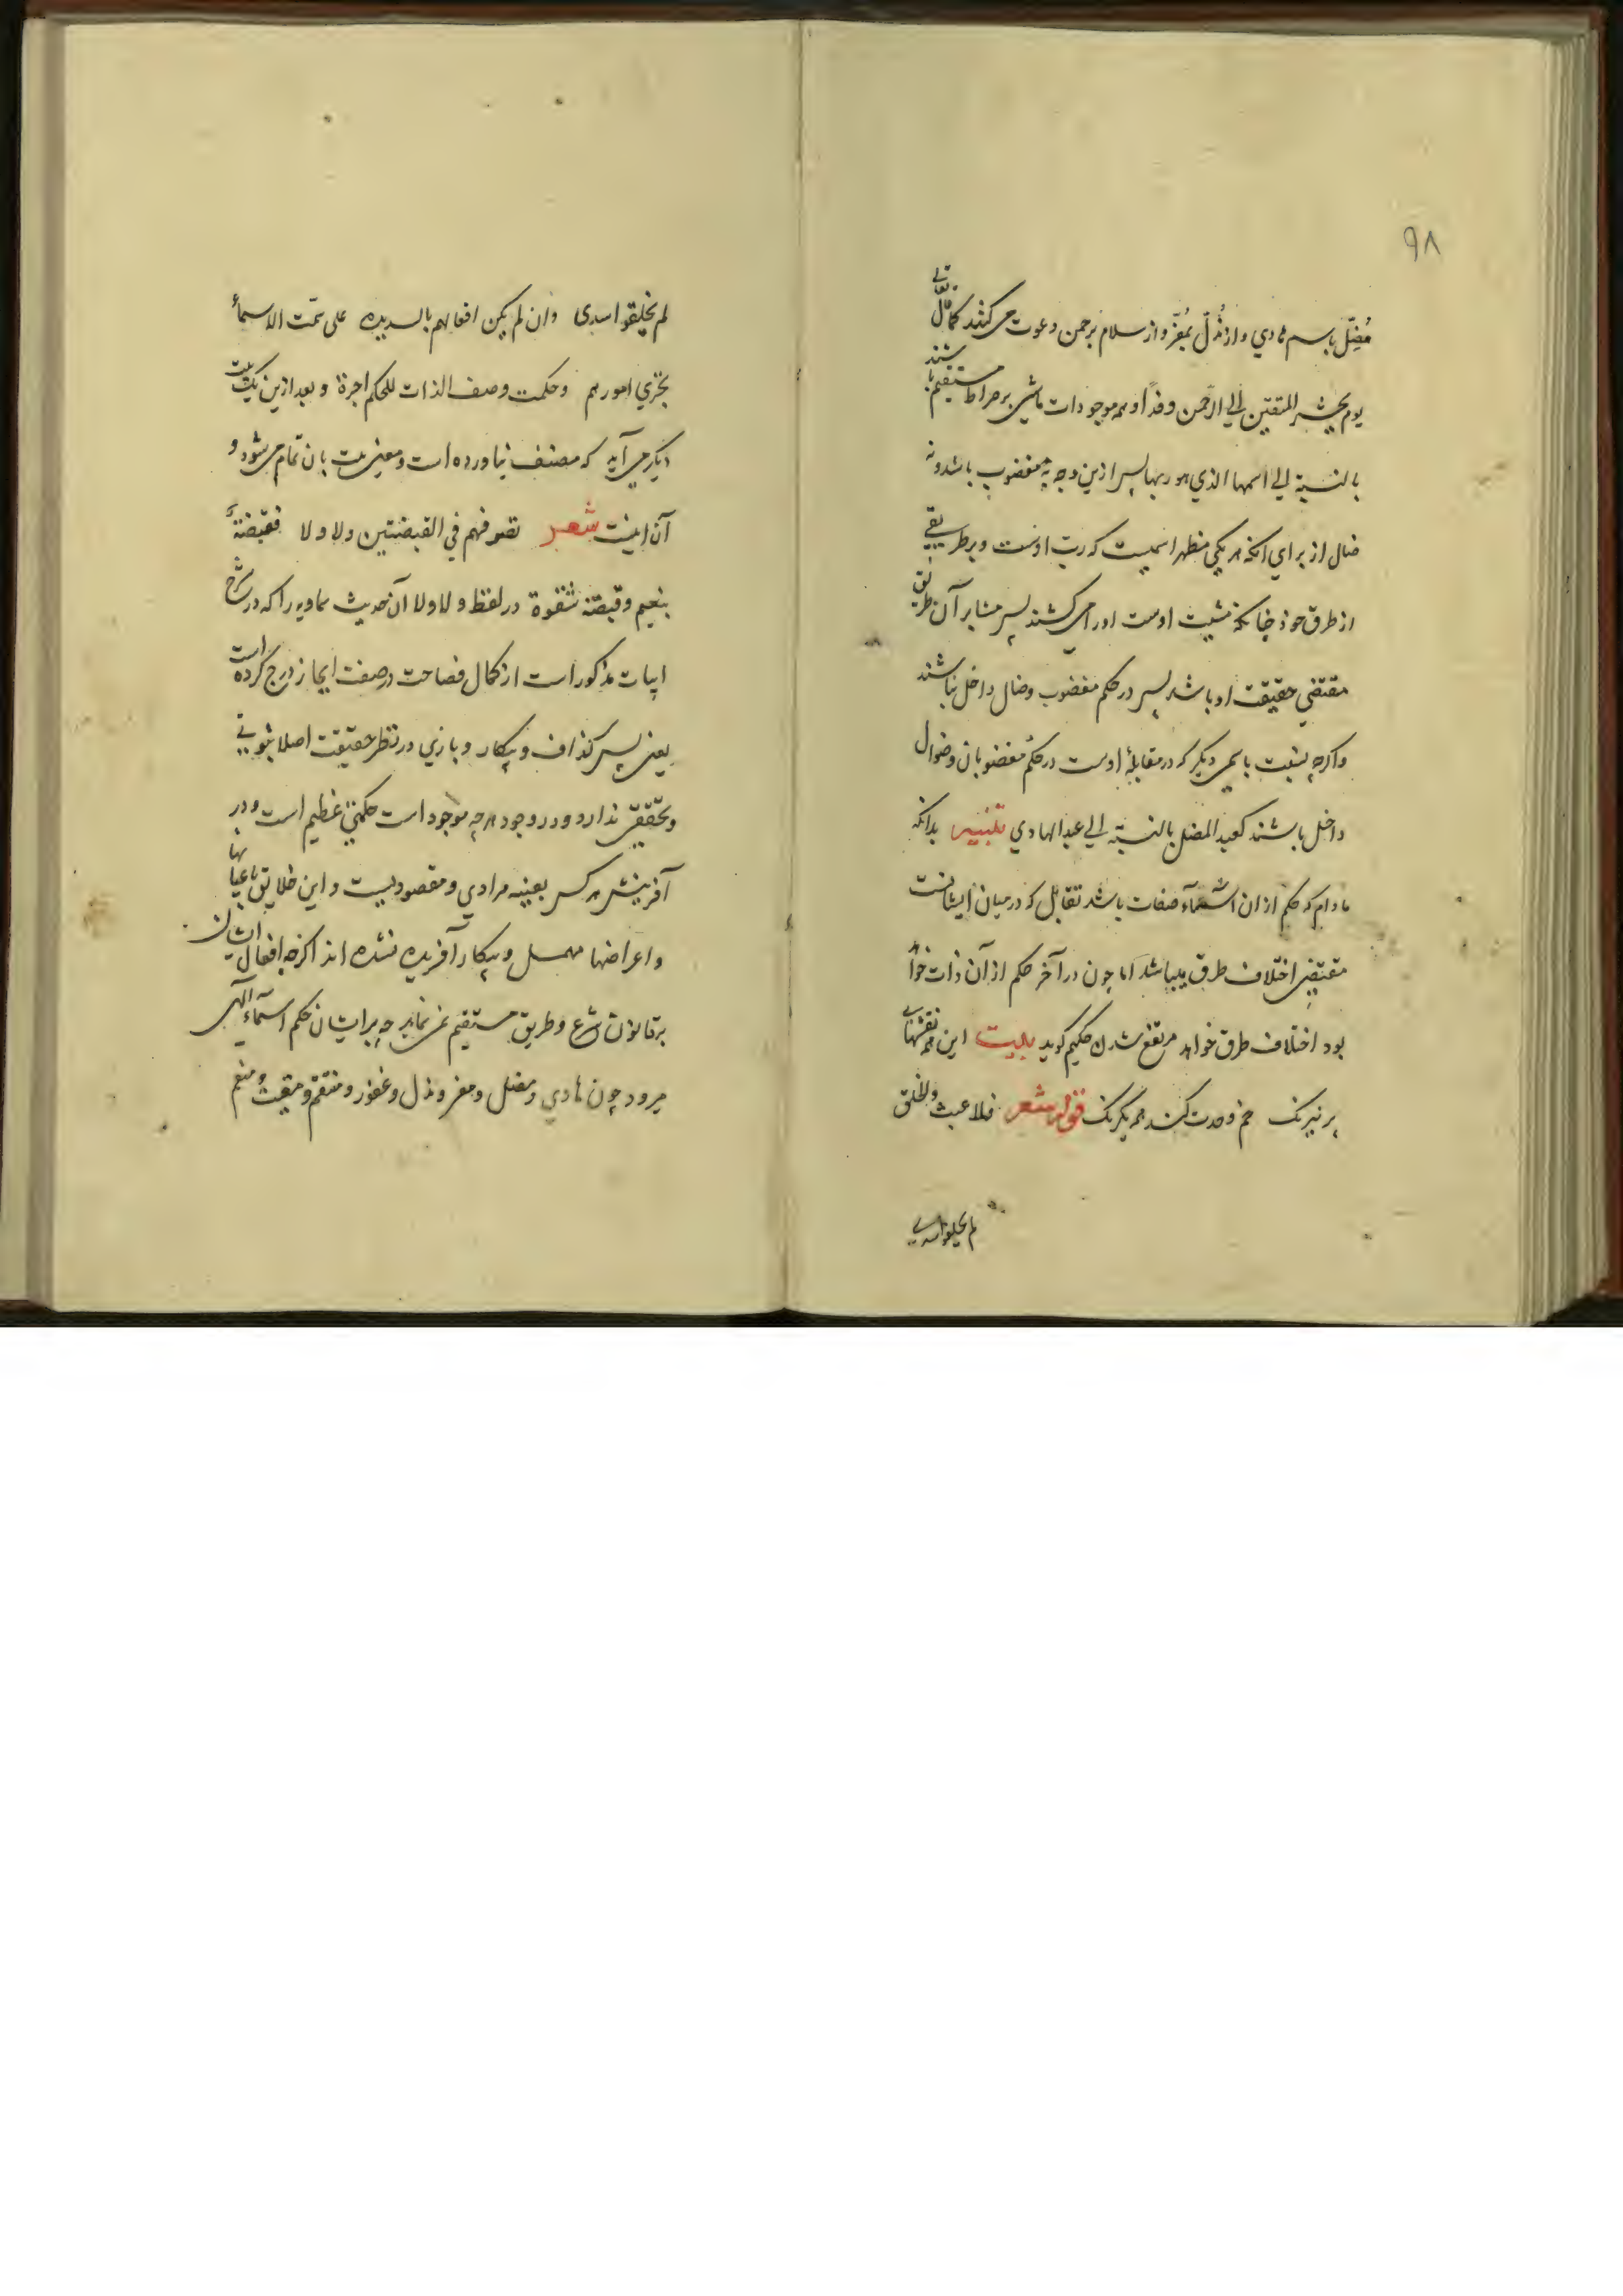 ۹۸
مُضِلّ باسم هادي واز مُذِلّ بمُعِزّ واز سلام برحمن دعوت می کنند کما قال تعالی
یوم یحشر المتقین الی الرحمن وفدا وهمه موجودات ماشی بر صراط مستقیم باشند
بالنسبة الی اسمها الذي هو ربها پس ازین وجه نه مغضوب باشد ونه
ضال از برای انکه هر یکی مظهر اسمیست که رب اوست وبر طریقی
از طرق خود چنانکه مشیت اوست اورا می کشند پس بنابر آن طریق
مقتضی حقیقت او باشد پس در حکم مغضوب وضال داخل نباشند
واکرچه بنسبت باسمی دیکر که در مقابلۀ اوست در حکم مغضوبان وضوال
داخل باشند کعبد المضل بالنسبة الی عبد الهادي تنبیه بدانکه
مادام که حکم از ان اسماء صفات باشد تقابل که در میان ایشانست
مقتضی اختلاف طرق میباشد اما چون در آخر حکم از آن ذات خواهد
بود اختلاف طرق خواهد مرتفع شدن حکیم کوید بیت این همه نقشهای
پر نیرنک خم وحدت کند همه یکرنک قوله شعر فلا عبث والخلق
لم یخلقوا سدی
لم یخلقوا سدی وان لم یکن افعالهم بالسدیده علی سمت الاسماء
تجری امورهم وحکمت وصف الذات للحکم اجرة وبعد ازین یک بیت
دیکر می آید که مصنف نیاورده است ومعنی بیت بان تمام می شود و
آن اینست شعر تصرفهم فی القبضتین ولا ولا فقبضة
بنعیم وقبضة شقوة در لفظ ولا ولا آن حدیث سماویه را که در شرح
ابیات مذکور است از کمال فصاحت در صفت ایجاز درج کرده است
یعنی پس کذاف وبیکار وبازي در نظر حقیقت اصلا ثبوتی
وتحققی ندارد ودر وجود هرچه موجود است حکمتی عظیم است ودر
آفرینش هر کس بعینه مرادي ومقصودیست واین خلایق باعیانها
واعراضها مهمل وبیکار آفریده نشده اند اکرچه افعال ایشان
بر قانون شرع وطریق مستقیم نمی نماید چه بر ایشان حکم اسماء الهی
میرود چون هادي ومضل ومعز ومذل وغفور ومنتقم ومقیت ومنعم